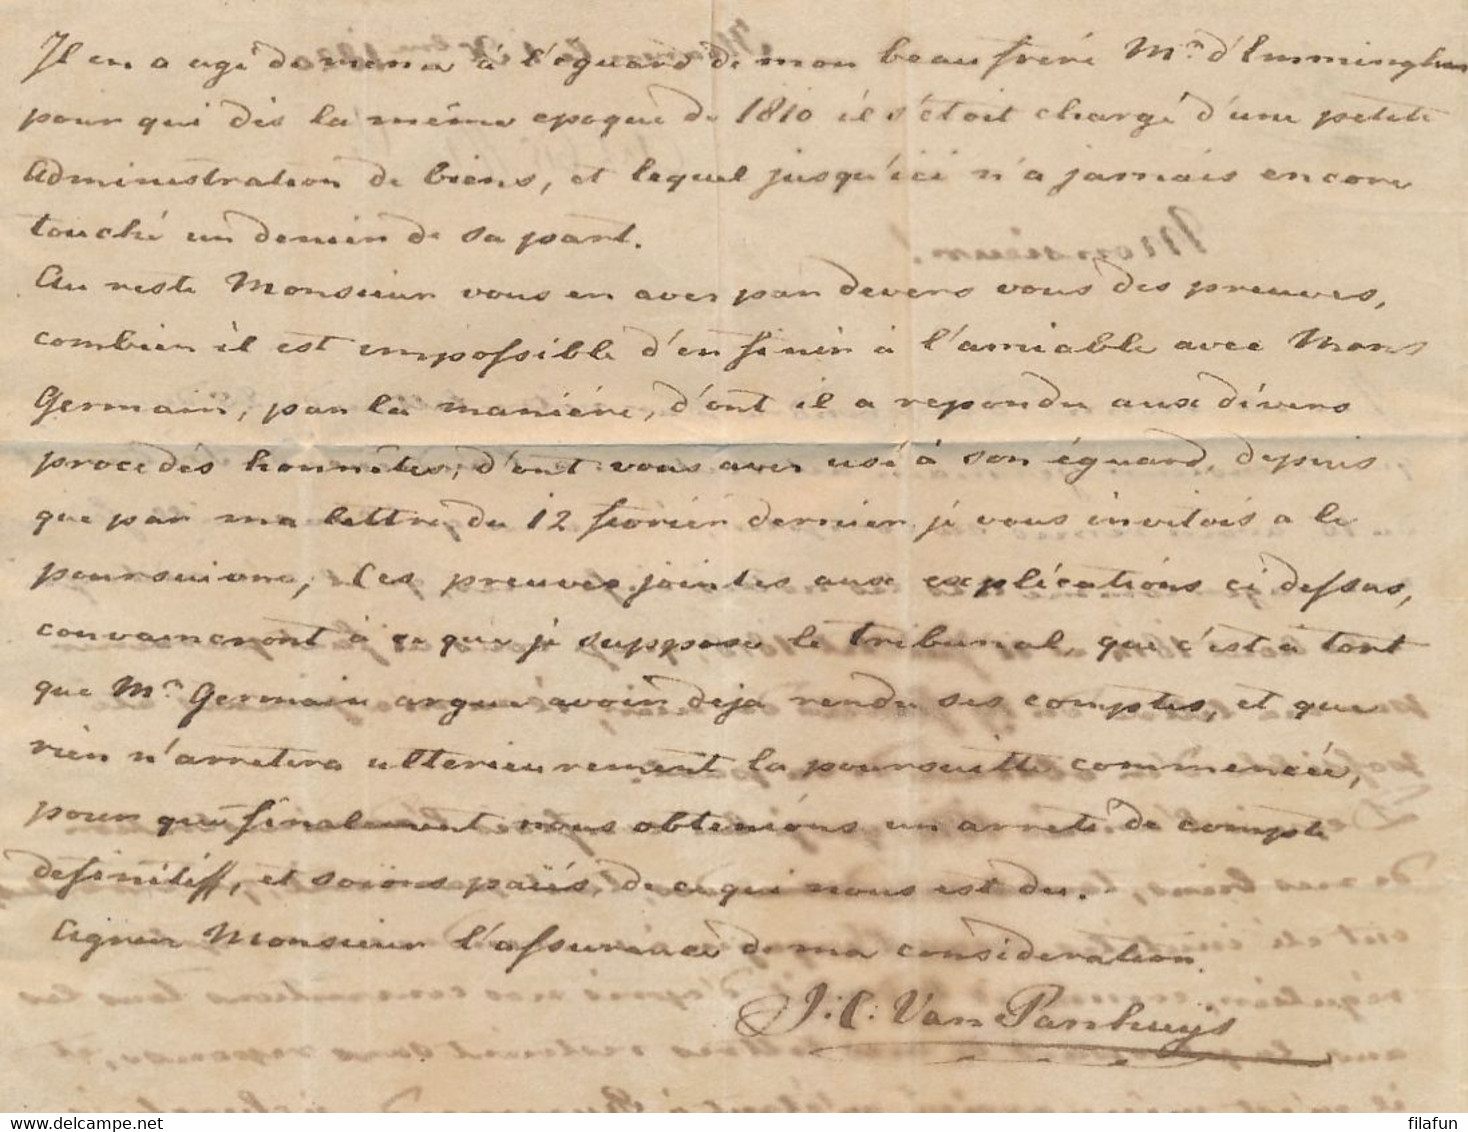 Il en a agi de meme à l'éguard de mon beau frére Mr. d'Emminghaus
pour qui dès la même epoque de 1810 il s'étoit chargé d'une petite
administration de biens, et lequel jusqu'ici n'a jamais encore
touché un denier de sa part.
Au reste Monsieur vous en aves par devers vous des preuves,
combien il est impossible d'en finir à l'amiable avec Mons
Germain, par la maniére, d'ont il a repondu aux divers
procedés honnêtes, d'ont vous aves usé à son éguard, depuis
que par ma lettre du 12 fevrier dernier je vous invitois a le
poursuivre, Ces preuves jointes aux explications ci dessus,
convaincront à ce que je suppose le tribunal, que c'est à tort
que Mr. Germain argue avoir deja rendu ses comptes, et que
rien n'arretera ulterieurement la poursuitte commencée,
pour que finalement nous obtenions un arreté de compte
definitiff, et soions païés de ce qui nous est du.
Agreer Monsieur l'assurence de ma consideration.
J: C: Van Panhuijs
filafun